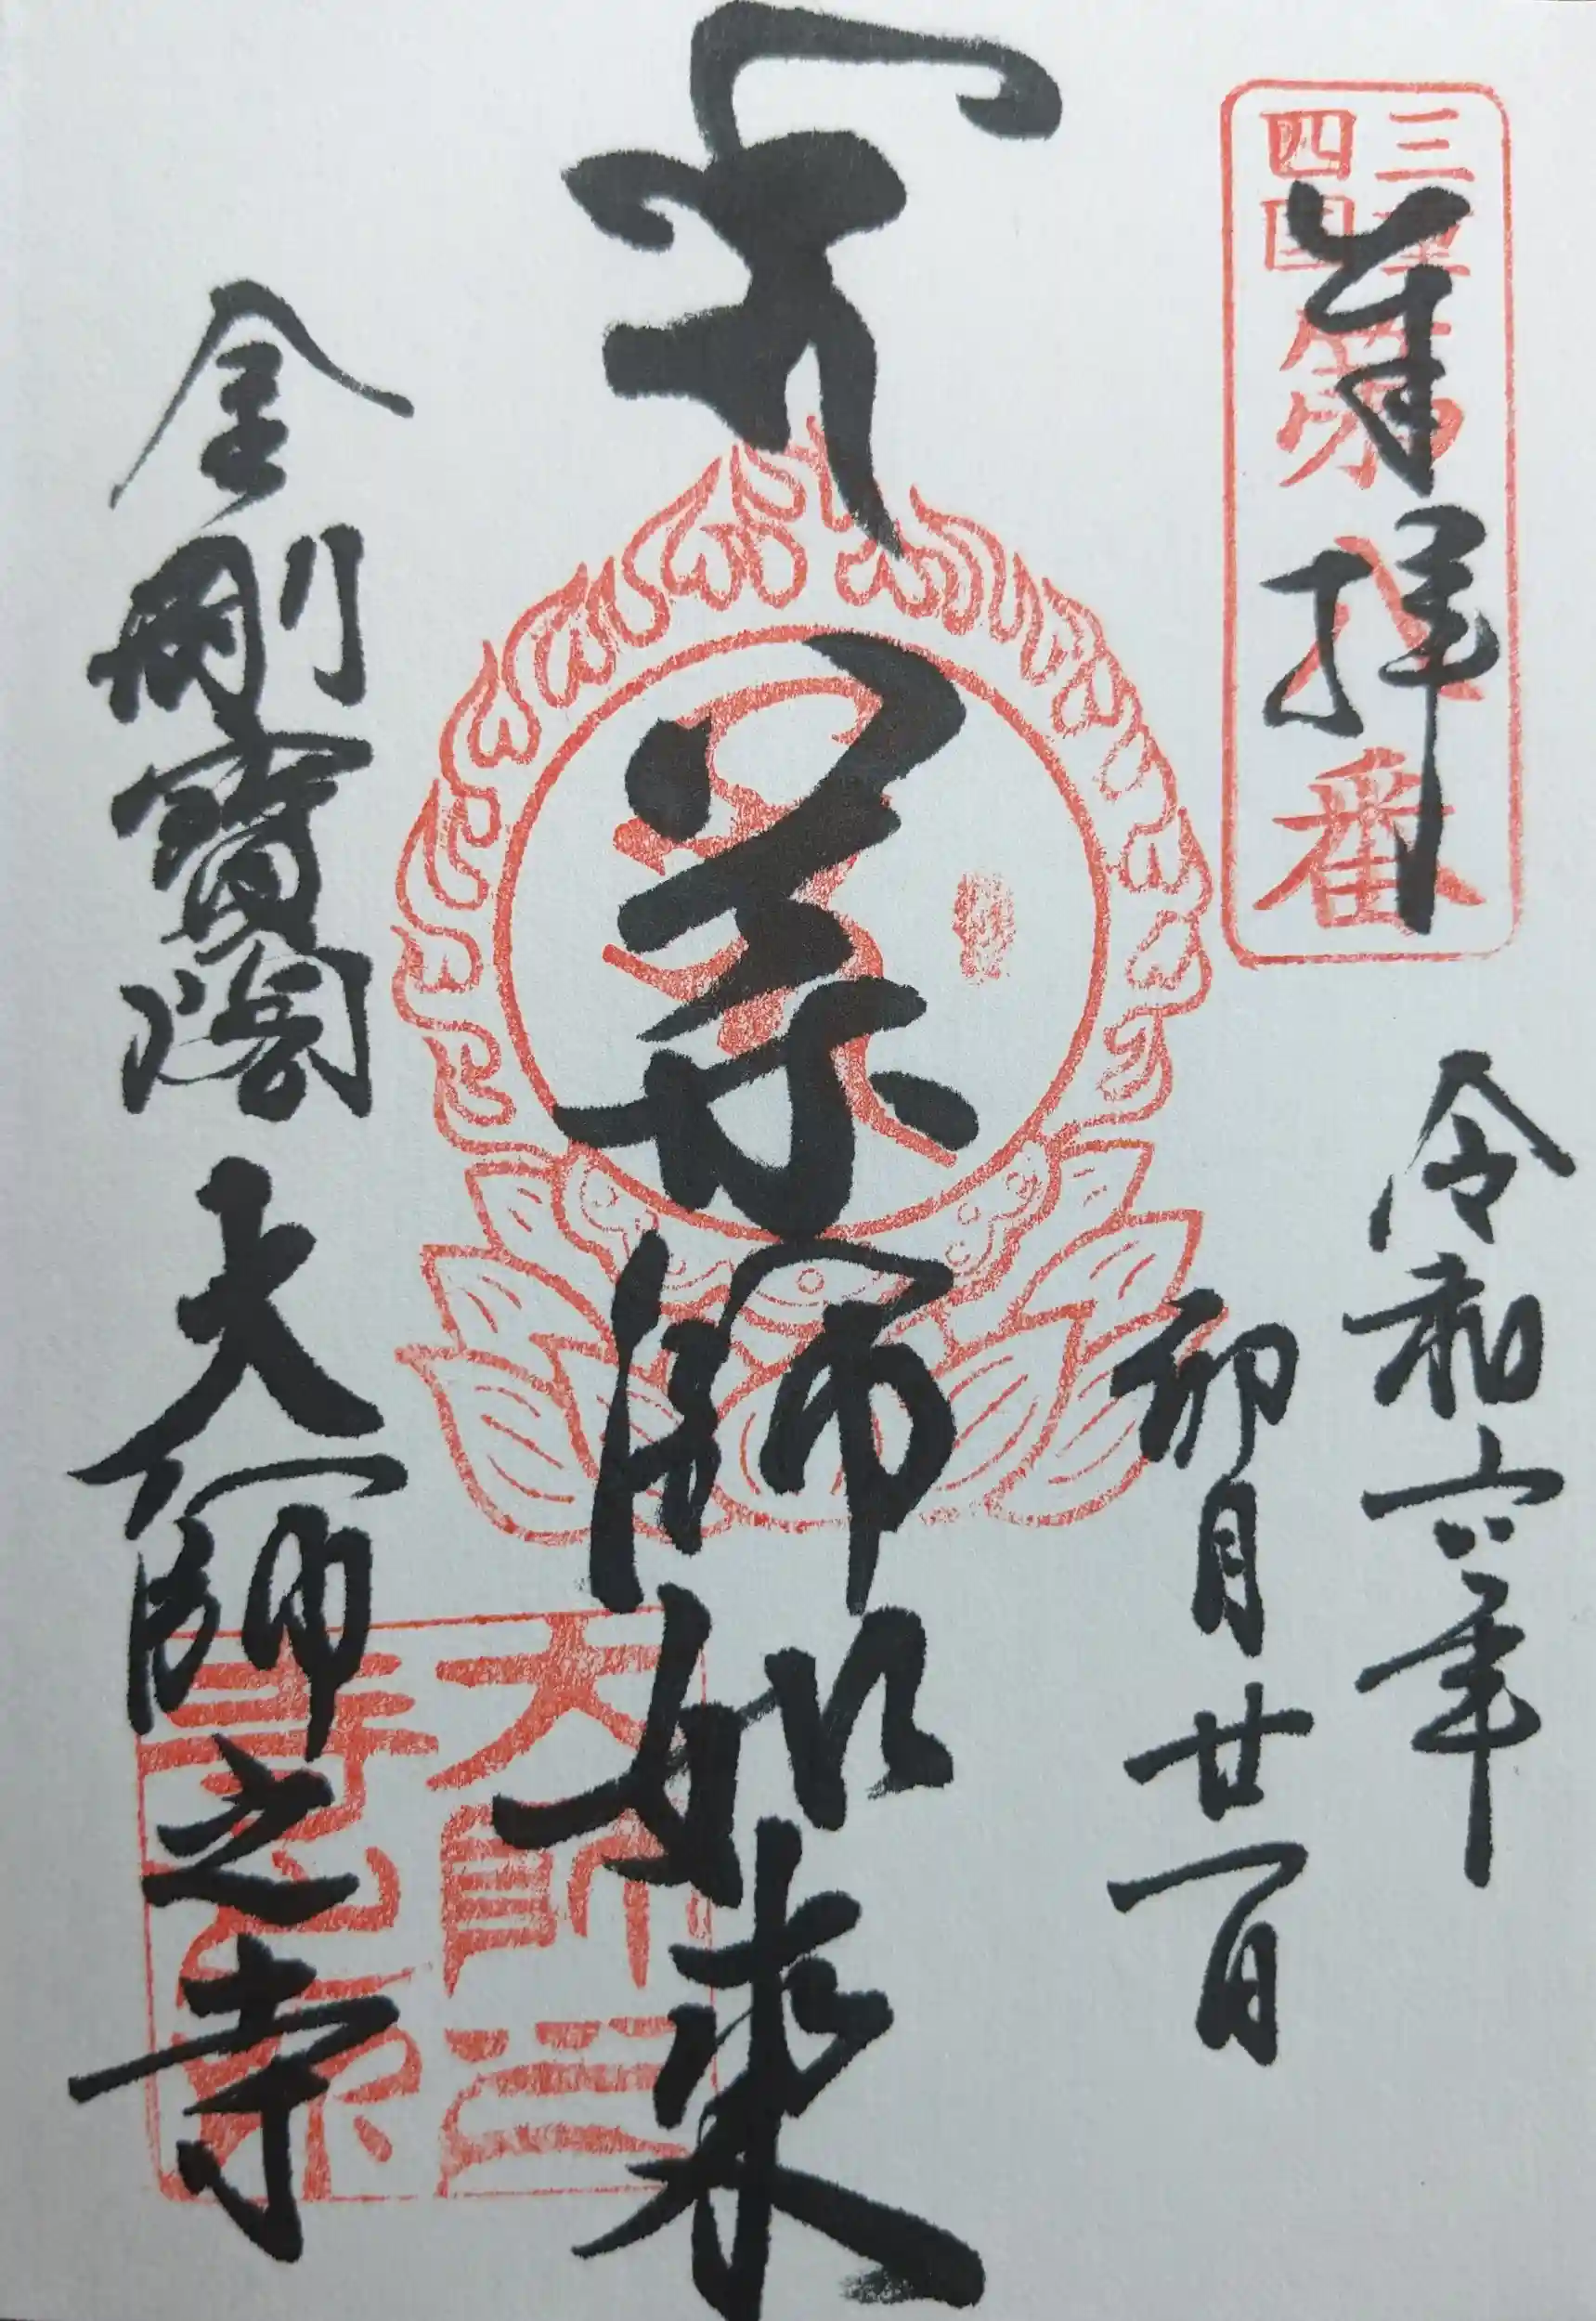 三重
四国
第八番
奉拝
令和六年
卯月廿一日
薬師如来
金剛寶閣 大師之寺
大師之
寺之印